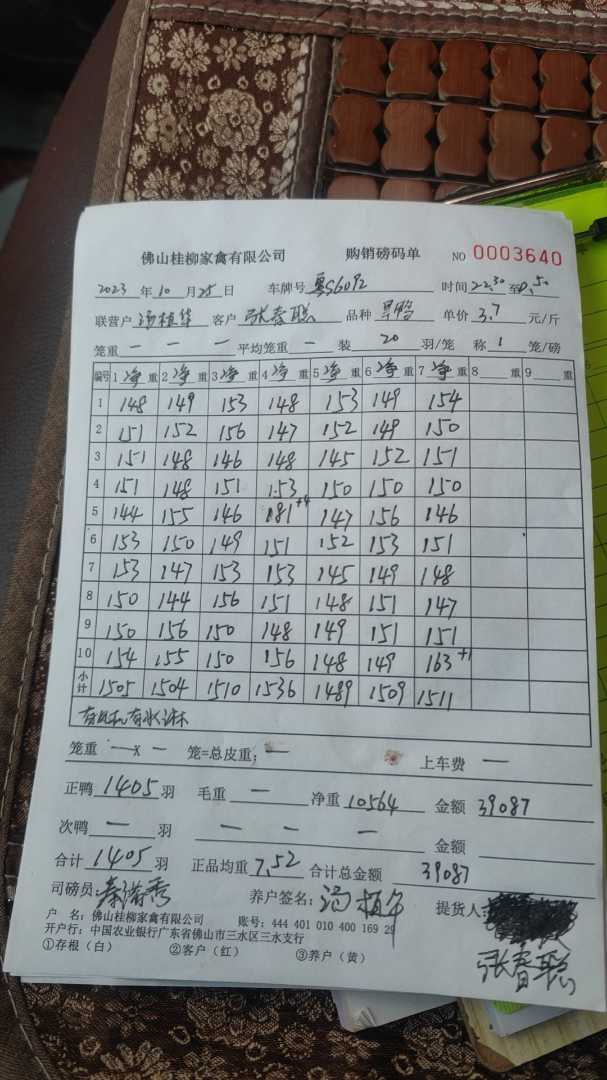 佛山桂柳家禽有限公司 购销磅码单 NO 0003640
2023年10月25日 车牌号 粤S6092 时间22.30至
联营户 汤植华 客户 张春聪 品种 单价3.7元/斤
笼重 — — — 平均笼重 — 装 20 羽/笼 称 1 笼/磅
编号 1净重 2净重 3净重 4净重 5净重 6净重 7净重 8 重 9 重
1 148 149 153 148 153 149 154
2 151 152 156 147 152 149 150
3 151 148 146 148 145 152 151
4 151 148 151 153 150 150 150
5 144 155 146 181+4 147 156 146
6 153 150 149 151 152 153 151
7 153 147 153 153 145 149 148
8 150 144 156 151 148 151 147
9 150 156 150 148 149 151 151
10 154 155 150 156 148 149 163+1
小计 1505 1504 1510 1536 1489 1509 1511
笼重 —x— 笼=总皮重: — 上车费 —
正鸭 1405 羽 毛重 — 净重 10564 金额 39087
次鸭 — 羽 — — — 金额
合计 1405 羽 正品均重 7.52 合计总金额 39087
司磅员: 养户签名: 汤植华 提货人:
张春聪
户 名: 佛山桂柳家禽有限公司 账号: 444 401 010 400 169 29
开户行: 中国农业银行广东省佛山市三水区三水支行
①存根（白） ②客户（红） ③养户（黄）